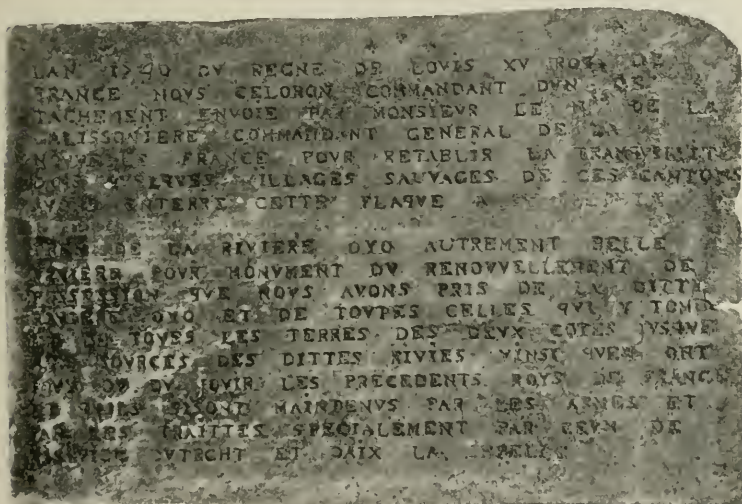 LAN 1749 DV REGNE DE LOVIS XV ROY DE
FRANCE NOVS CELORON COMMANDANT DVN DE
TACHEMENT ENVOIE PAR MONSIEVR LE MIS DE LA
GALISSONIERE COMMANDANT GENERAL DE LA
NOUVELLE FRANCE POVR RETABLIR LA TRANQVILLITE
DANS QVELQVES VILLAGES SAUVAGES DE CES CANTONS
AVONS ENTERRE CETTE PLAQVE A
PRES DE LA RIVIERE OYO AUTREMENT BELLE
RIVIERE POVR MONVMENT DV RENOVVELLEMENT DE
POSSESSION QVE NOVS AVONS PRIS DE LA DITTE
RIVIERE OYO ET DE TOVTES CELLES QVI Y TOMBE
ET DE TOVES LES TERRES DES DEVX COTES JVSQVE
AVX SOVRCES DES DITTES RIVIES VINSI QVEN ONT
JOVY OV DV JOVIR LES PRECEDENTS ROYS DE FRANCE
ET QVILS SISONT MAINTENVS PAR LES ARMES ET
PAR LES TRAITTES SPECIALEMENT PAR CEVX DE
RISVVICK DVTRCHT ET DAIX LA CHPELLE